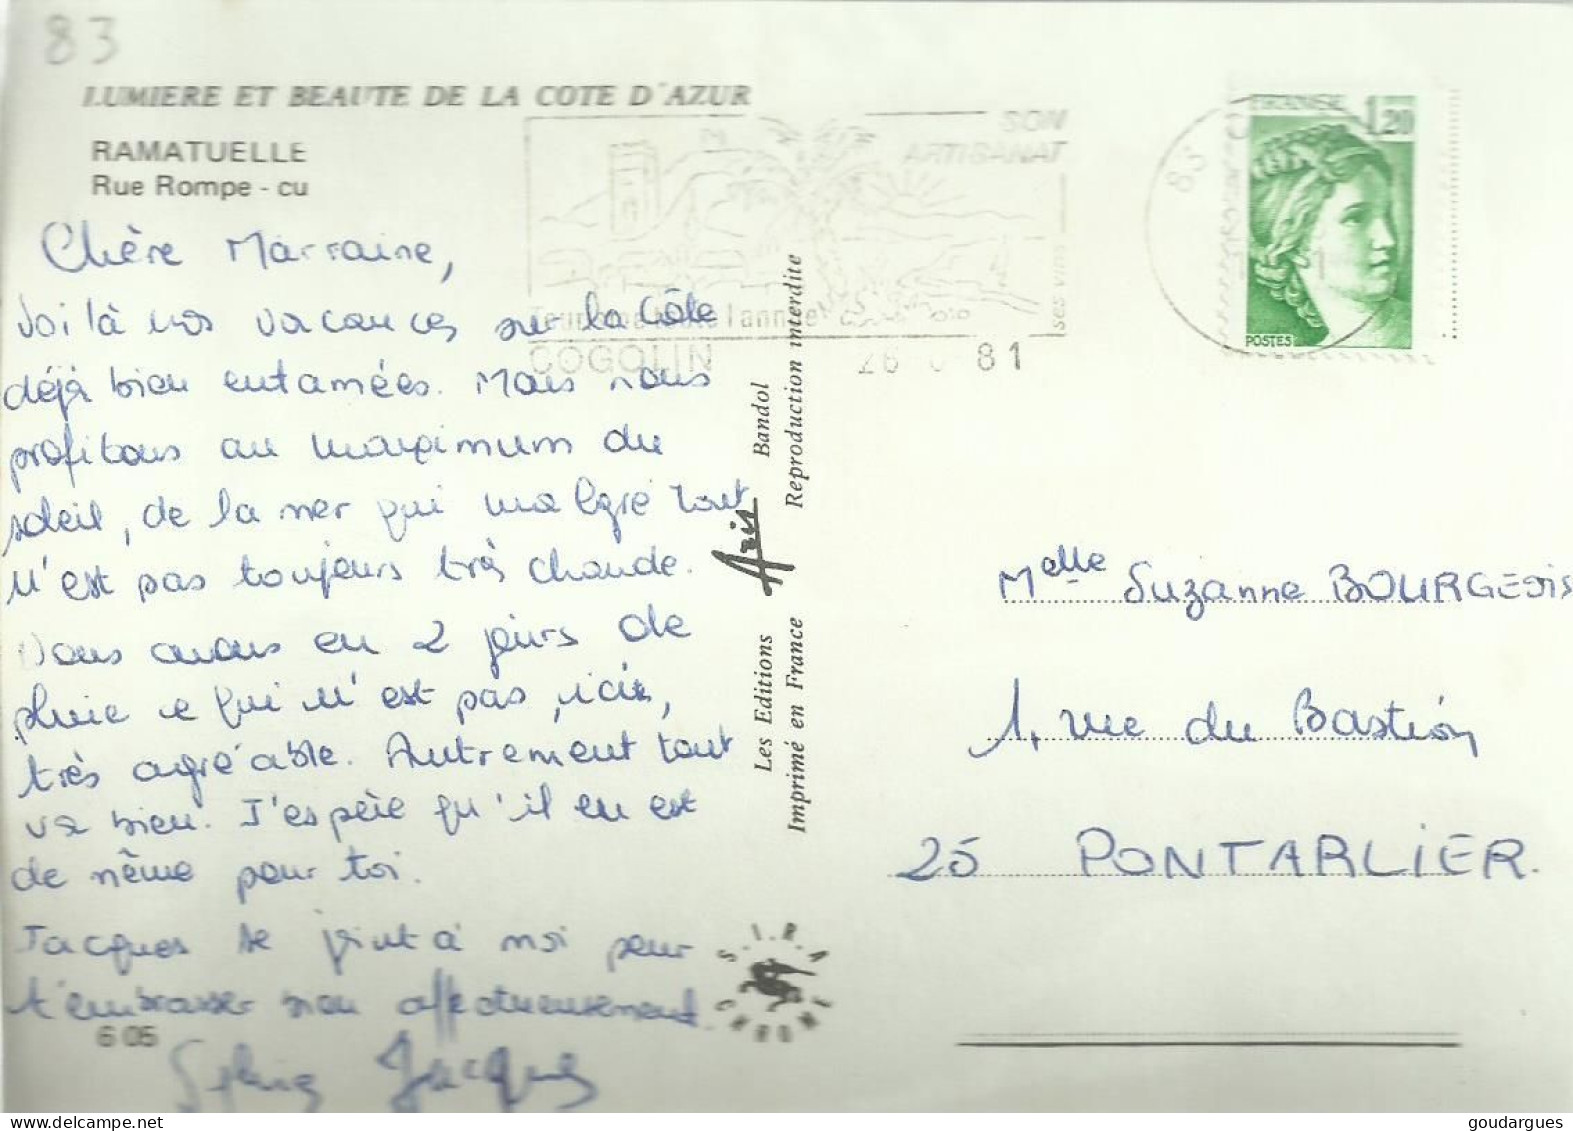 83
LUMIERE ET BEAUTE DE LA COTE D'AZUR
RAMATUELLE
Rue Rompe - cu
Chère Marraine,
Voilà nos vacances sur la Côte
déjà bien entamées. Mais nous
profitons au maximum du
soleil, de la mer qui malgré tout
n'est pas toujours très chaude.
Nous avons eu 2 jours de
pluie ce qui n'est pas, ici,
très agréable. Autrement tout
va bien. J'espère qu'il en est
de même pour toi.
Jacques se joint à moi pour
t'embrasser bien affectueusement.
6 05
Sylvie Jacques
SON
ARTISANAT
ses vins
Tourisme toute l'année
COGOLIN
81
Les Editions Aris Bandol
Imprimé en France Reproduction interdite
S.I.R.A
CHROME
83
FRANCE
1,20
POSTES
Melle Suzanne BOURGEOIS
1, rue du Bastion
25 PONTARLIER.
goudargues